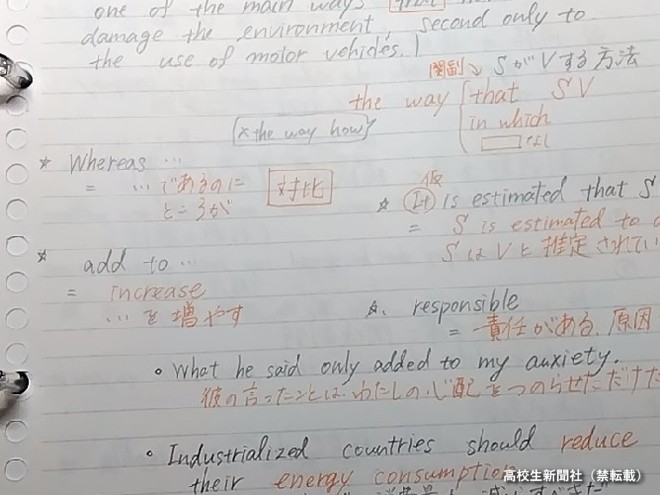 one of the main ways that
damage the environment, second only to
the use of motor vehicles.
関副 SがVする方法
the way that SV
in which
なし
(×the way how)
* Whereas …
= …であるのに 対比
ところが
* 仮
It is estimated that S
= S is estimated to
SはVと推定されてい
* add to …
= increase
…を増やす
☆. responsible
= 責任がある、原因
• What he said only added to my anxiety.
彼の言ったことは、わたしの心配をつのらせただけだ
• Industrialized countries should reduce
their energy consumption
高校生新聞社（禁転載）